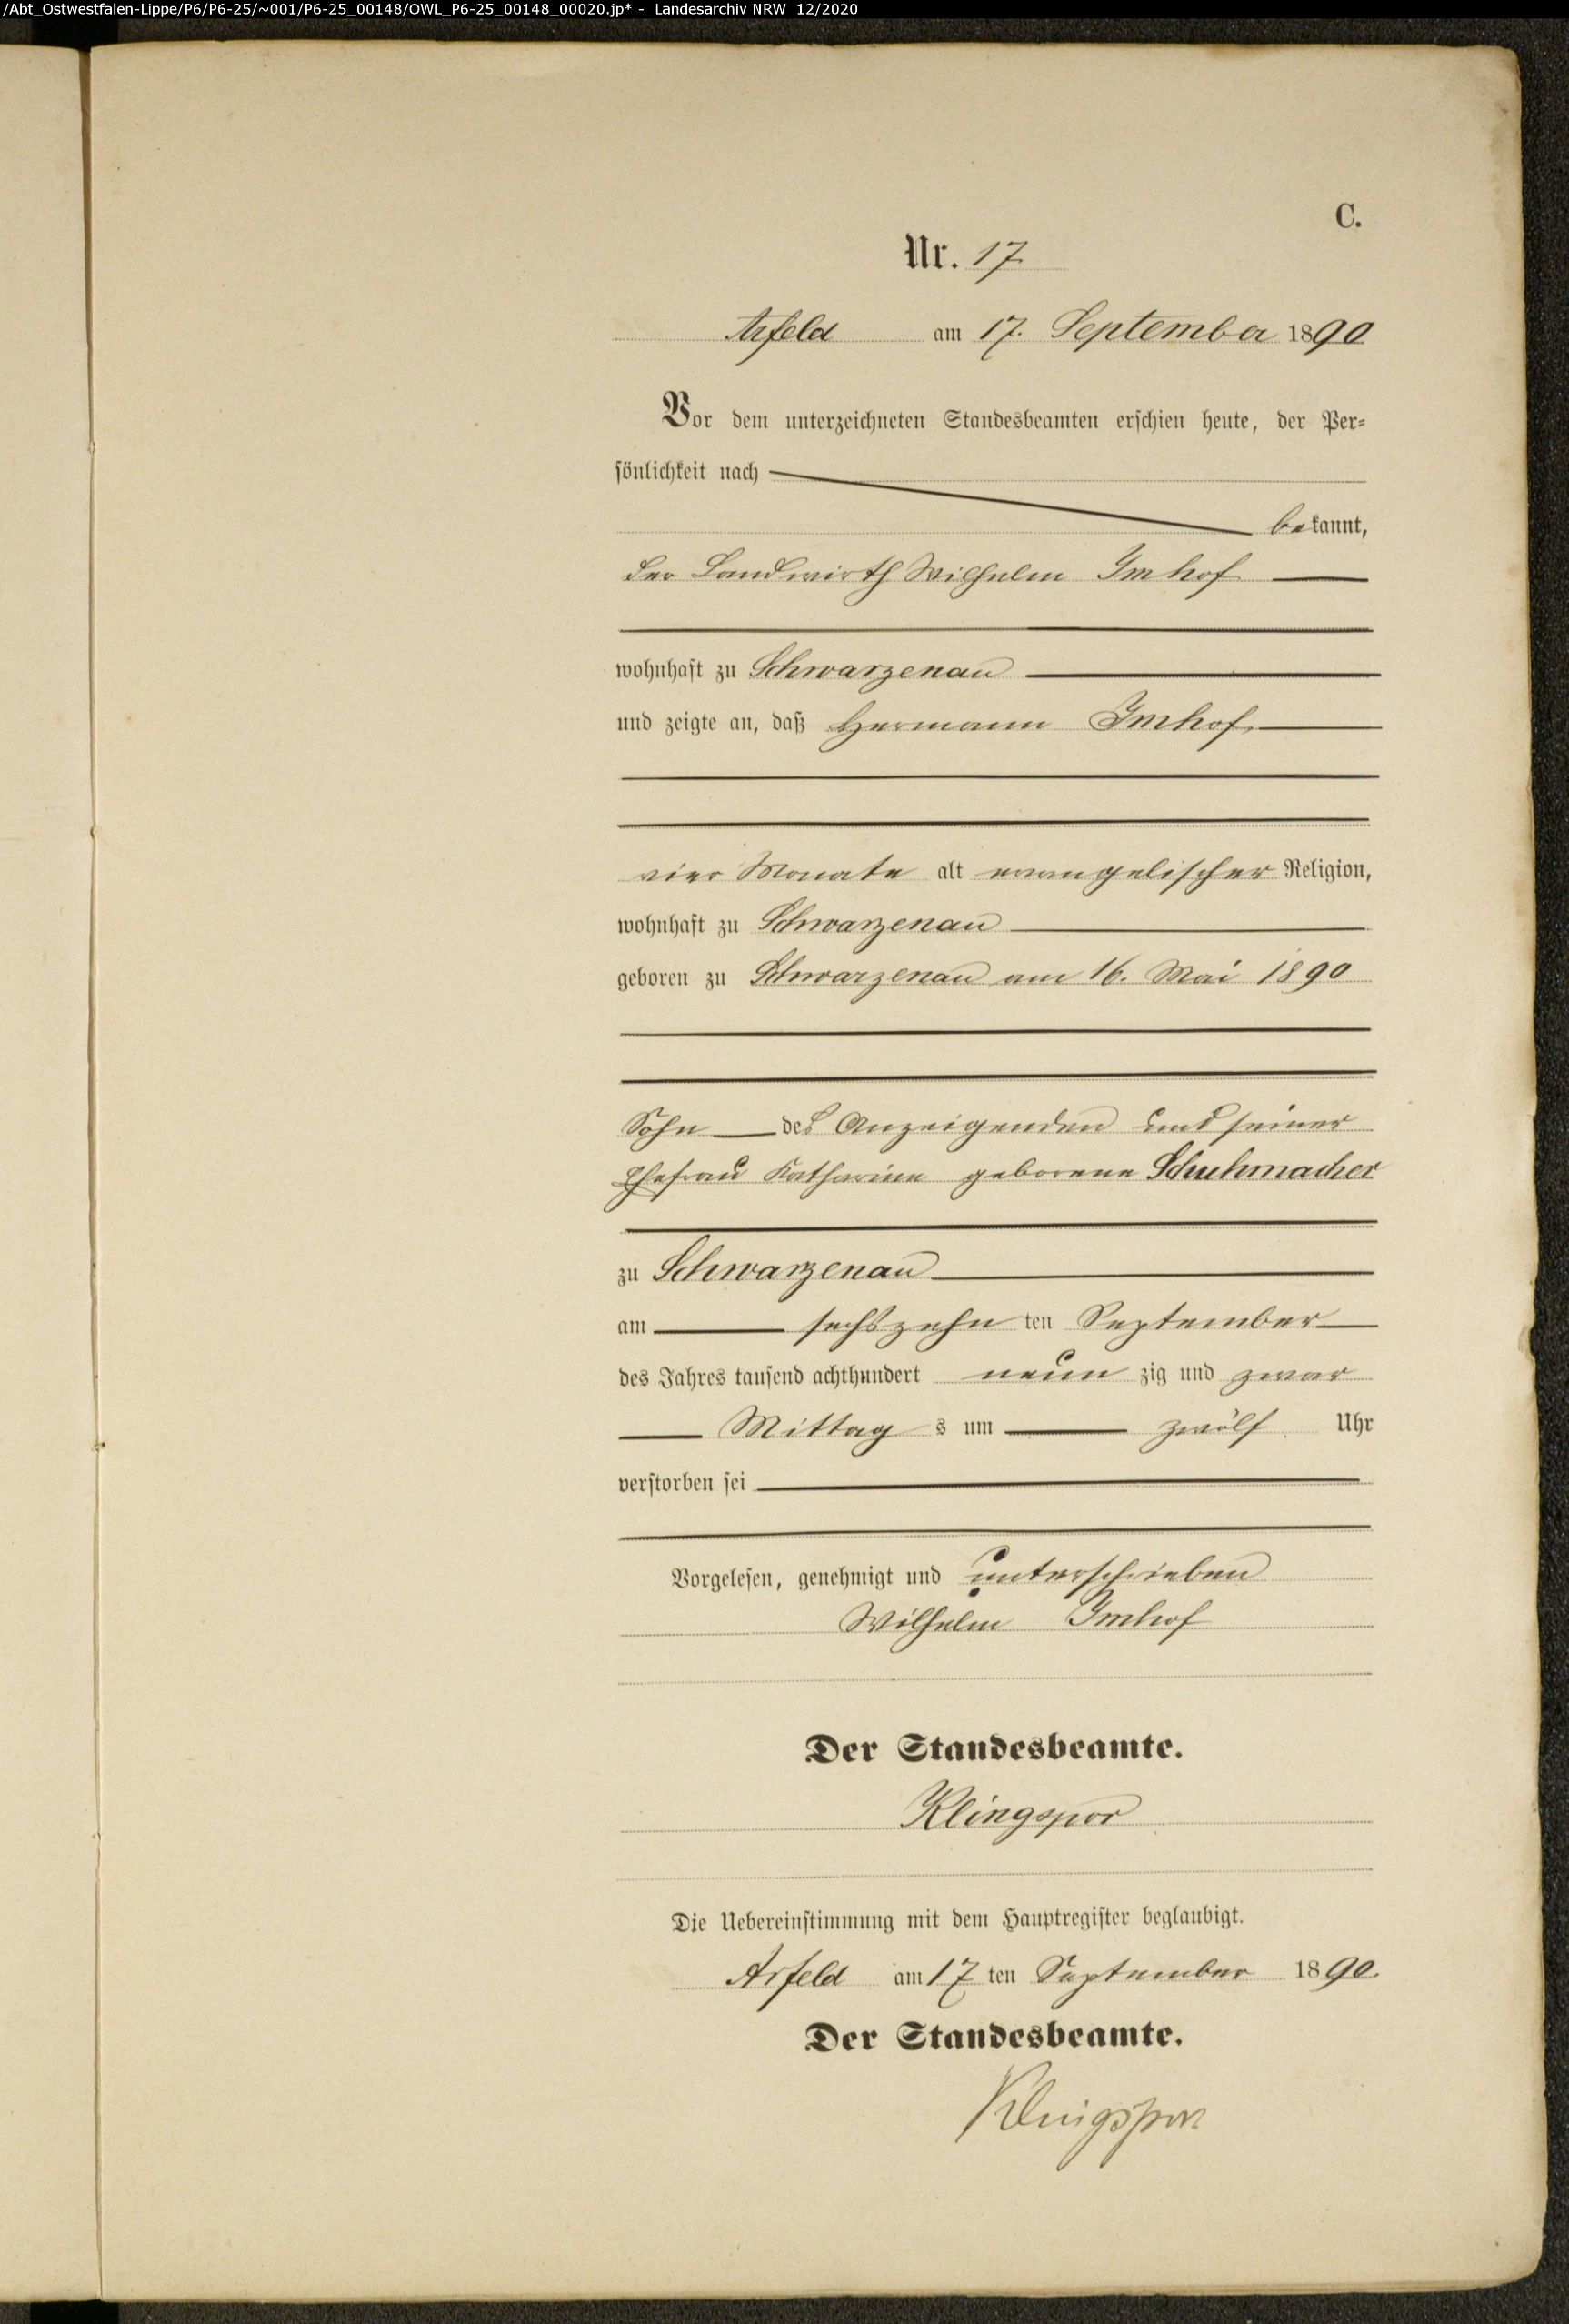 /Abt_Ostwestfalen-Lippe/P6/P6-25/~001/P6-25_00148/OWL_P6-25_00148_00020.jp* - Landesarchiv NRW 12/2020
C.
Nr. 17
Arfeld am 17. September 1890
Vor dem unterzeichneten Standesbeamten erschien heute, der Per-
sönlichkeit nach
bekannt,
der Landwirth Wilhelm Imhof
wohnhaft zu Schwarzenau
und zeigte an, daß Hermann Imhof
vier Monate alt evangelischer Religion,
wohnhaft zu Schwarzenau
geboren zu Schwarzenau am 16. Mai 1890
Sohn des Anzeigenden und seiner
Ehefrau Katharine geborene Schuhmacher
zu Schwarzenau
am sechszehn ten September
des Jahres tausend achthundert neun zig und zwar
Mittag s um zwölf Uhr
verstorben sei
Vorgelesen, genehmigt und unterschrieben
Wilhelm Imhof
Der Standesbeamte.
Klingspor
Die Uebereinstimmung mit dem Hauptregister beglaubigt.
Arfeld am 17 ten September 1890.
Der Standesbeamte.
Klingspor